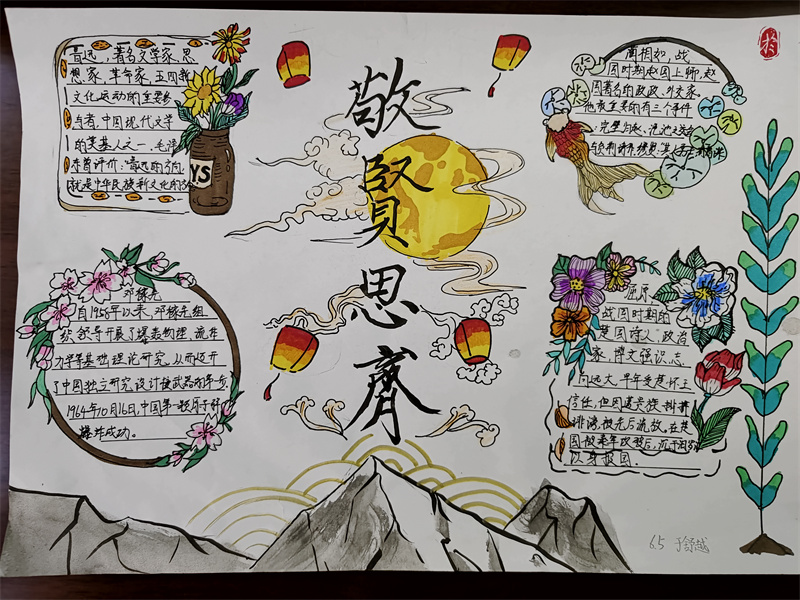 敬
賢
思
齊
鲁迅,著名文学家,思
想家,革命家,五四新
文化运动的重要参
与者,中国现代文学
的奠基人之一。毛泽
东曾评价:“鲁迅的方向,
就是中华民族新文化的方向
YS
蔺相如,战
国时期赵国上卿,赵
国著名的政政、外交家,
他最重要的有三个事件
:完璧归赵、渑池之会
与负荆请罪
邓稼先
自1958年以来,邓稼先组
织领导开展了爆轰物理、流体
力学等基础理论研究,从而迈开
了中国独立研究设计核武器的第一步
1964年10月16日,中国第一颗原子弹
爆炸成功。
屈原
战国时期的
楚国诗人、政治
家,博文强识,志
向远大,早年受楚怀王
信任,但因遭贵族排挤
诽谤,被先后流放,在楚
国被秦军攻破后,沉于汨罗
以身报国。
6.5 于舒越